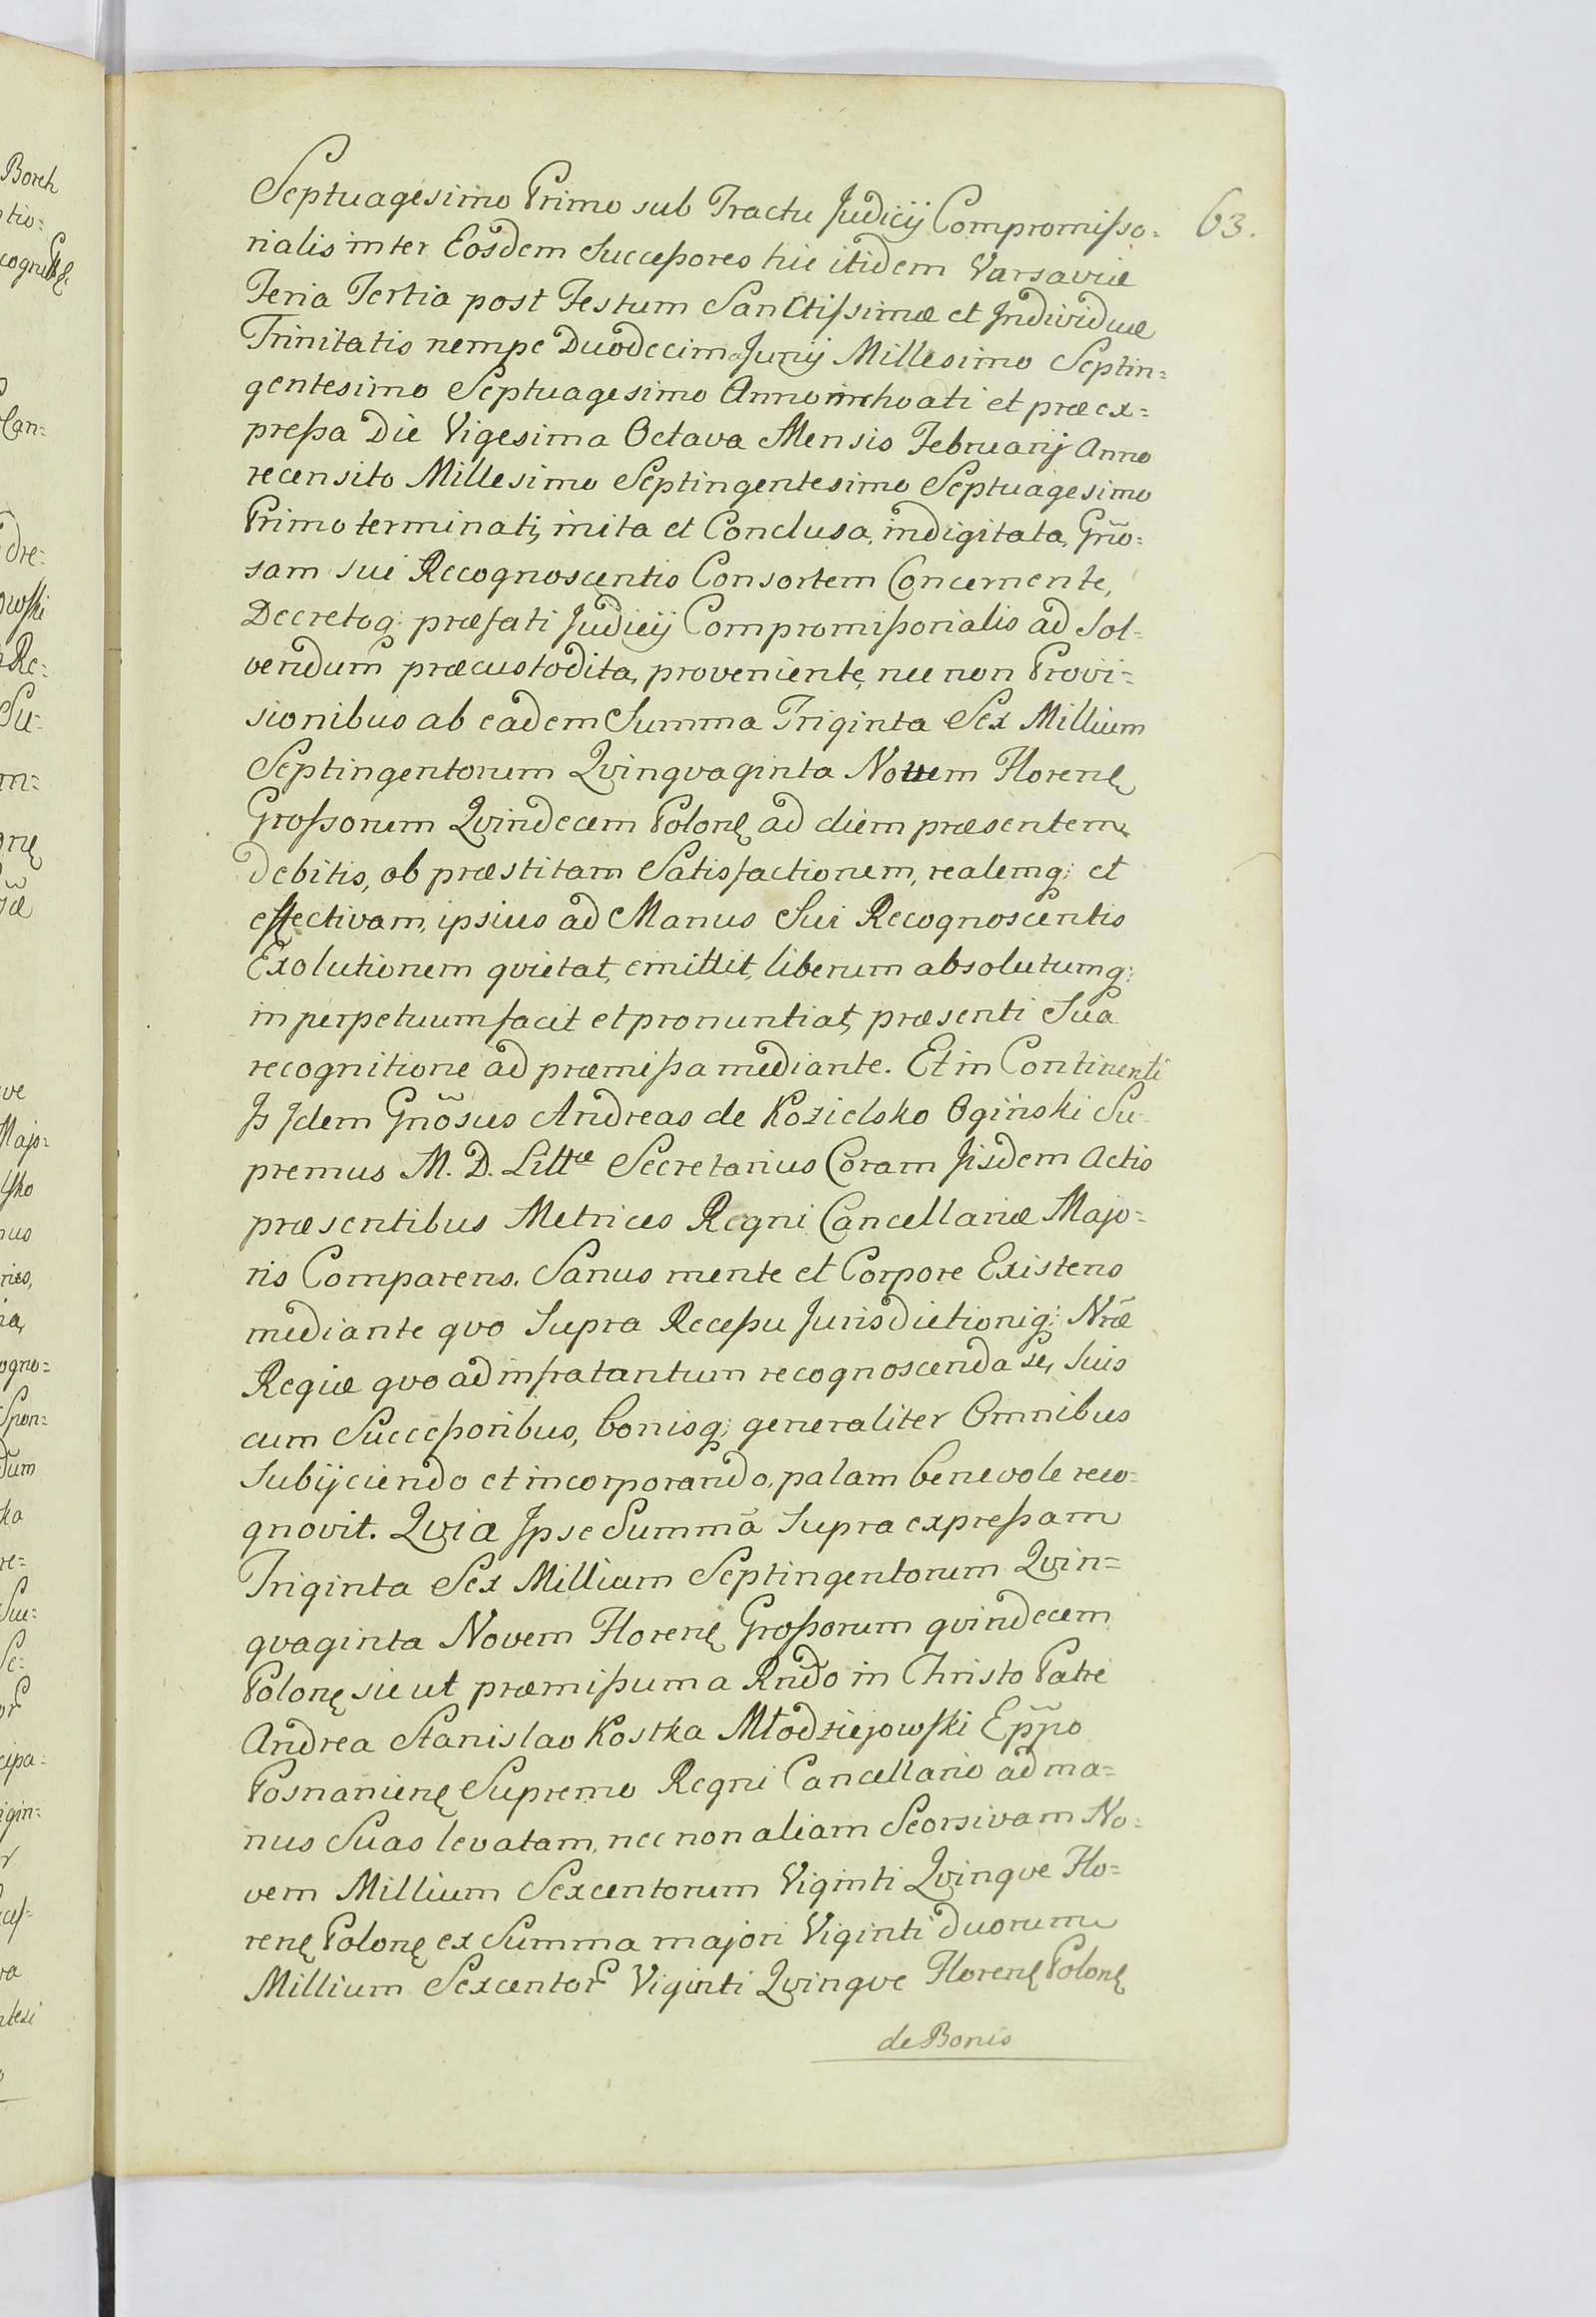 Septuagesimo Primo sub Tractu Judicij Compromißo= 63.
rialis inter Eosdem Succeßores hic itidem Varsaviæ
Feria Tertia post Festum Sanctißimæ et Individuæ
Trinitatis nempe Duodecima Junij Millesimo Septin=
gentesimo Septuagesimo Anno inchoati et præex=
preßa Die Vigesima Octava Mensis Februarij Anno
recensito Millesimo Septingentesimo Septuagesimo
Primo terminati, inita et Conclusa, indigitata, Gño=
sam sui Recognoscentis Consortem Concernente,
Decretoq: præfati Judicij Compromißorialis ad Sol=
vendum præcustodita, proveniente, nec non Provi=
sionibus ab eadem Summa Triginta Sex Millium
Septingentorum Qvinqvaginta Novem Florenę
Großorum Qvindecem Polonę ad diem præsentem
Debitis, ob præstitam Satisfactionem, realemq: et
effectivam, ipsius ad Manus Sui Recognoscentis
Exolutionem qvietat, emittit, liberum absolutumq:
in perpetuum facit et pronuntiat, præsenti Sua
recognitione ad præmißa mediante. Et in Continenti
Js Jdem Gñosus Andreas de Kozielsko Ogiński Su=
premus M. D. Littæ Secretarius Coram Jisdem Actis
præsentibus Metrices Regni Cancellariæ Majo=
ris Comparens. Sanus mente et Corpore Existens
mediante qvo Supra Receßu Jurisdictioniq: Nræ̃
Regiæ qvo ad infra tantum recognoscenda se, Suis
cum Succeßoribus, bonisq: generaliter Omnibus
Subijciendo et incorporando, palam benevole reco=
gnovit. Qvia Jpse Summã Supra expreßam
Triginta Sex Millium Septingentorum Qvin=
qvaginta Novem Florenę Großorum qvindecem
Polonę sicut præmißum a Rñdo in Christo Patre
Andrea Stanislao Kostka Młodziejowski Epp̃o
Posnanienę Supremo Regni Cancellario ad ma=
nus Suas levatam, nec non aliam Seorsivam No=
vem Millium Sexcentorum Viginti Qvinqve Flo=
renę Polonę ex Summa majori Viginti duorum
Millium Sexcentor Viginti Qvinqve Florenę Polonę
de Bonis